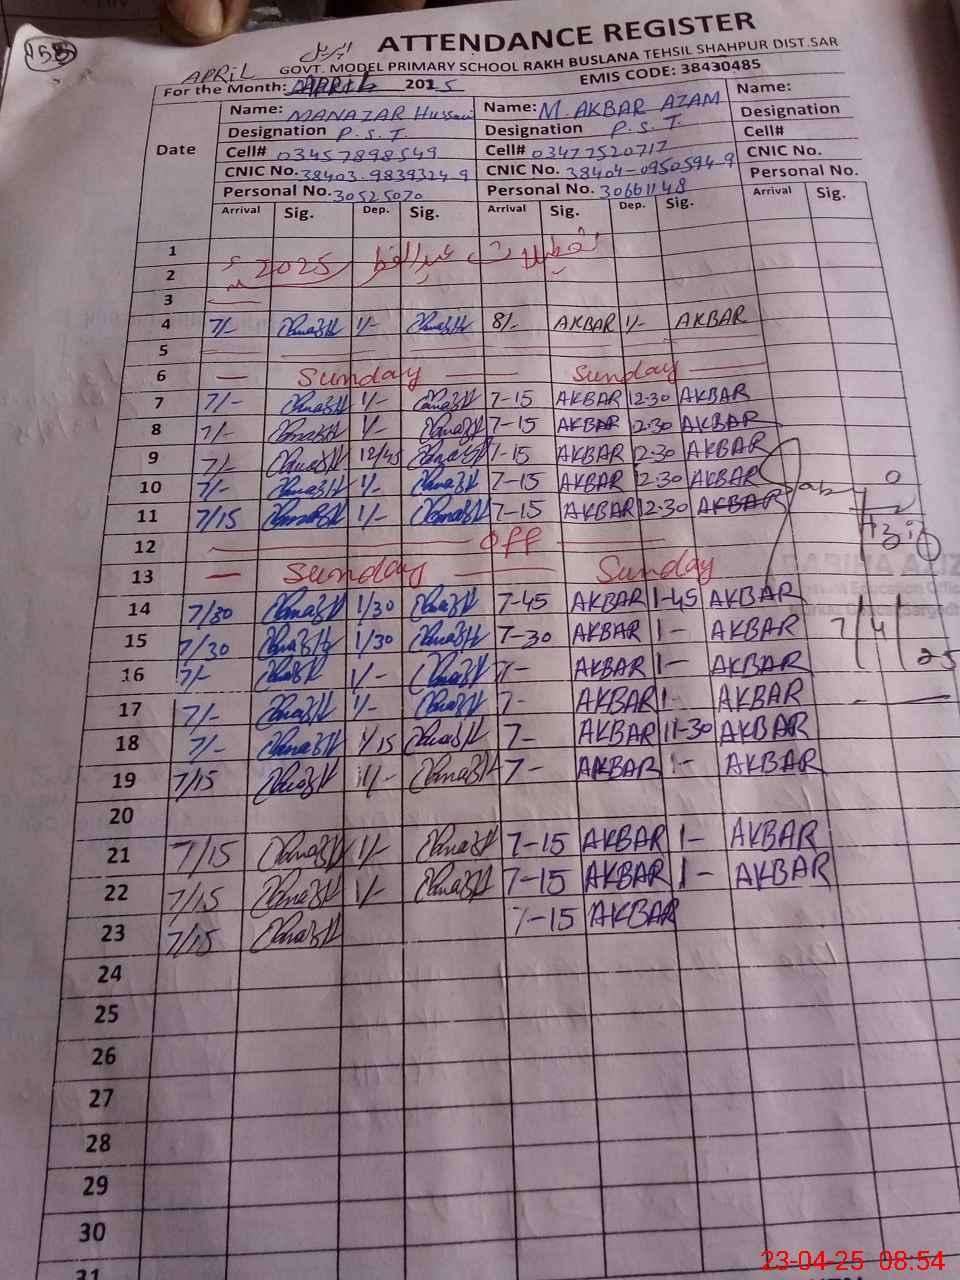 155
اپریل ATTENDANCE REGISTER
GOVT. MODEL PRIMARY SCHOOL RAKH BUSLANA TEHSIL SHAHPUR DIST.SAR
APRIL EMIS CODE: 38430485
For the Month: APRIL 2025
Date Name: MANAZAR Hussain Name: M. AKBAR AZAM Name:
Designation P.S.T. Designation P.S.T. Designation
Cell# 03457898549 Cell# 03477520717 Cell#
CNIC No. 38403-9839324-9 CNIC No. 38404-0950594-9 CNIC No.
Personal No. 30525070 Personal No. 30661148 Personal No.
Arrival Sig. Dep. Sig. Arrival Sig. Dep. Sig. Arrival Sig.
1 تعطیلات عیدالفطر 2025ء
2
3
4 7/- 1/- 8/- AKBAR 1/- AKBAR
5
6 — Sunday — Sunday —
7 7/- 1/- 7-15 AKBAR 12-30 AKBAR
8 7/- 1/- 7-15 AKBAR 12-30 AKBAR
9 7/- 12/45 7-15 AKBAR 12-30 AKBAR
10 7/- 1/- 7-15 AKBAR 12-30 AKBAR
11 7/15 1/- 7-15 AKBAR 12-30 AKBAR
12 — OFF —
13 — Sunday — Sunday
14 7/30 1/30 7-45 AKBAR 1-45 AKBAR
15 7/30 1/30 7-30 AKBAR 1- AKBAR 7/4/25
16 7/- 1/- 7- AKBAR 1- AKBAR
17 7/- 1/- 7- AKBAR 1- AKBAR
18 7/- 1/15 7- AKBAR 11-30 AKBAR
19 7/15 1/- 7- AKBAR 1- AKBAR
20
21 7/15 1/- 7-15 AKBAR 1- AKBAR
22 7/15 1/- 7-15 AKBAR 1- AKBAR
23 7/15 7-15 AKBAR
24
25
26
27
28
29
30
31
23-04-25 08:54